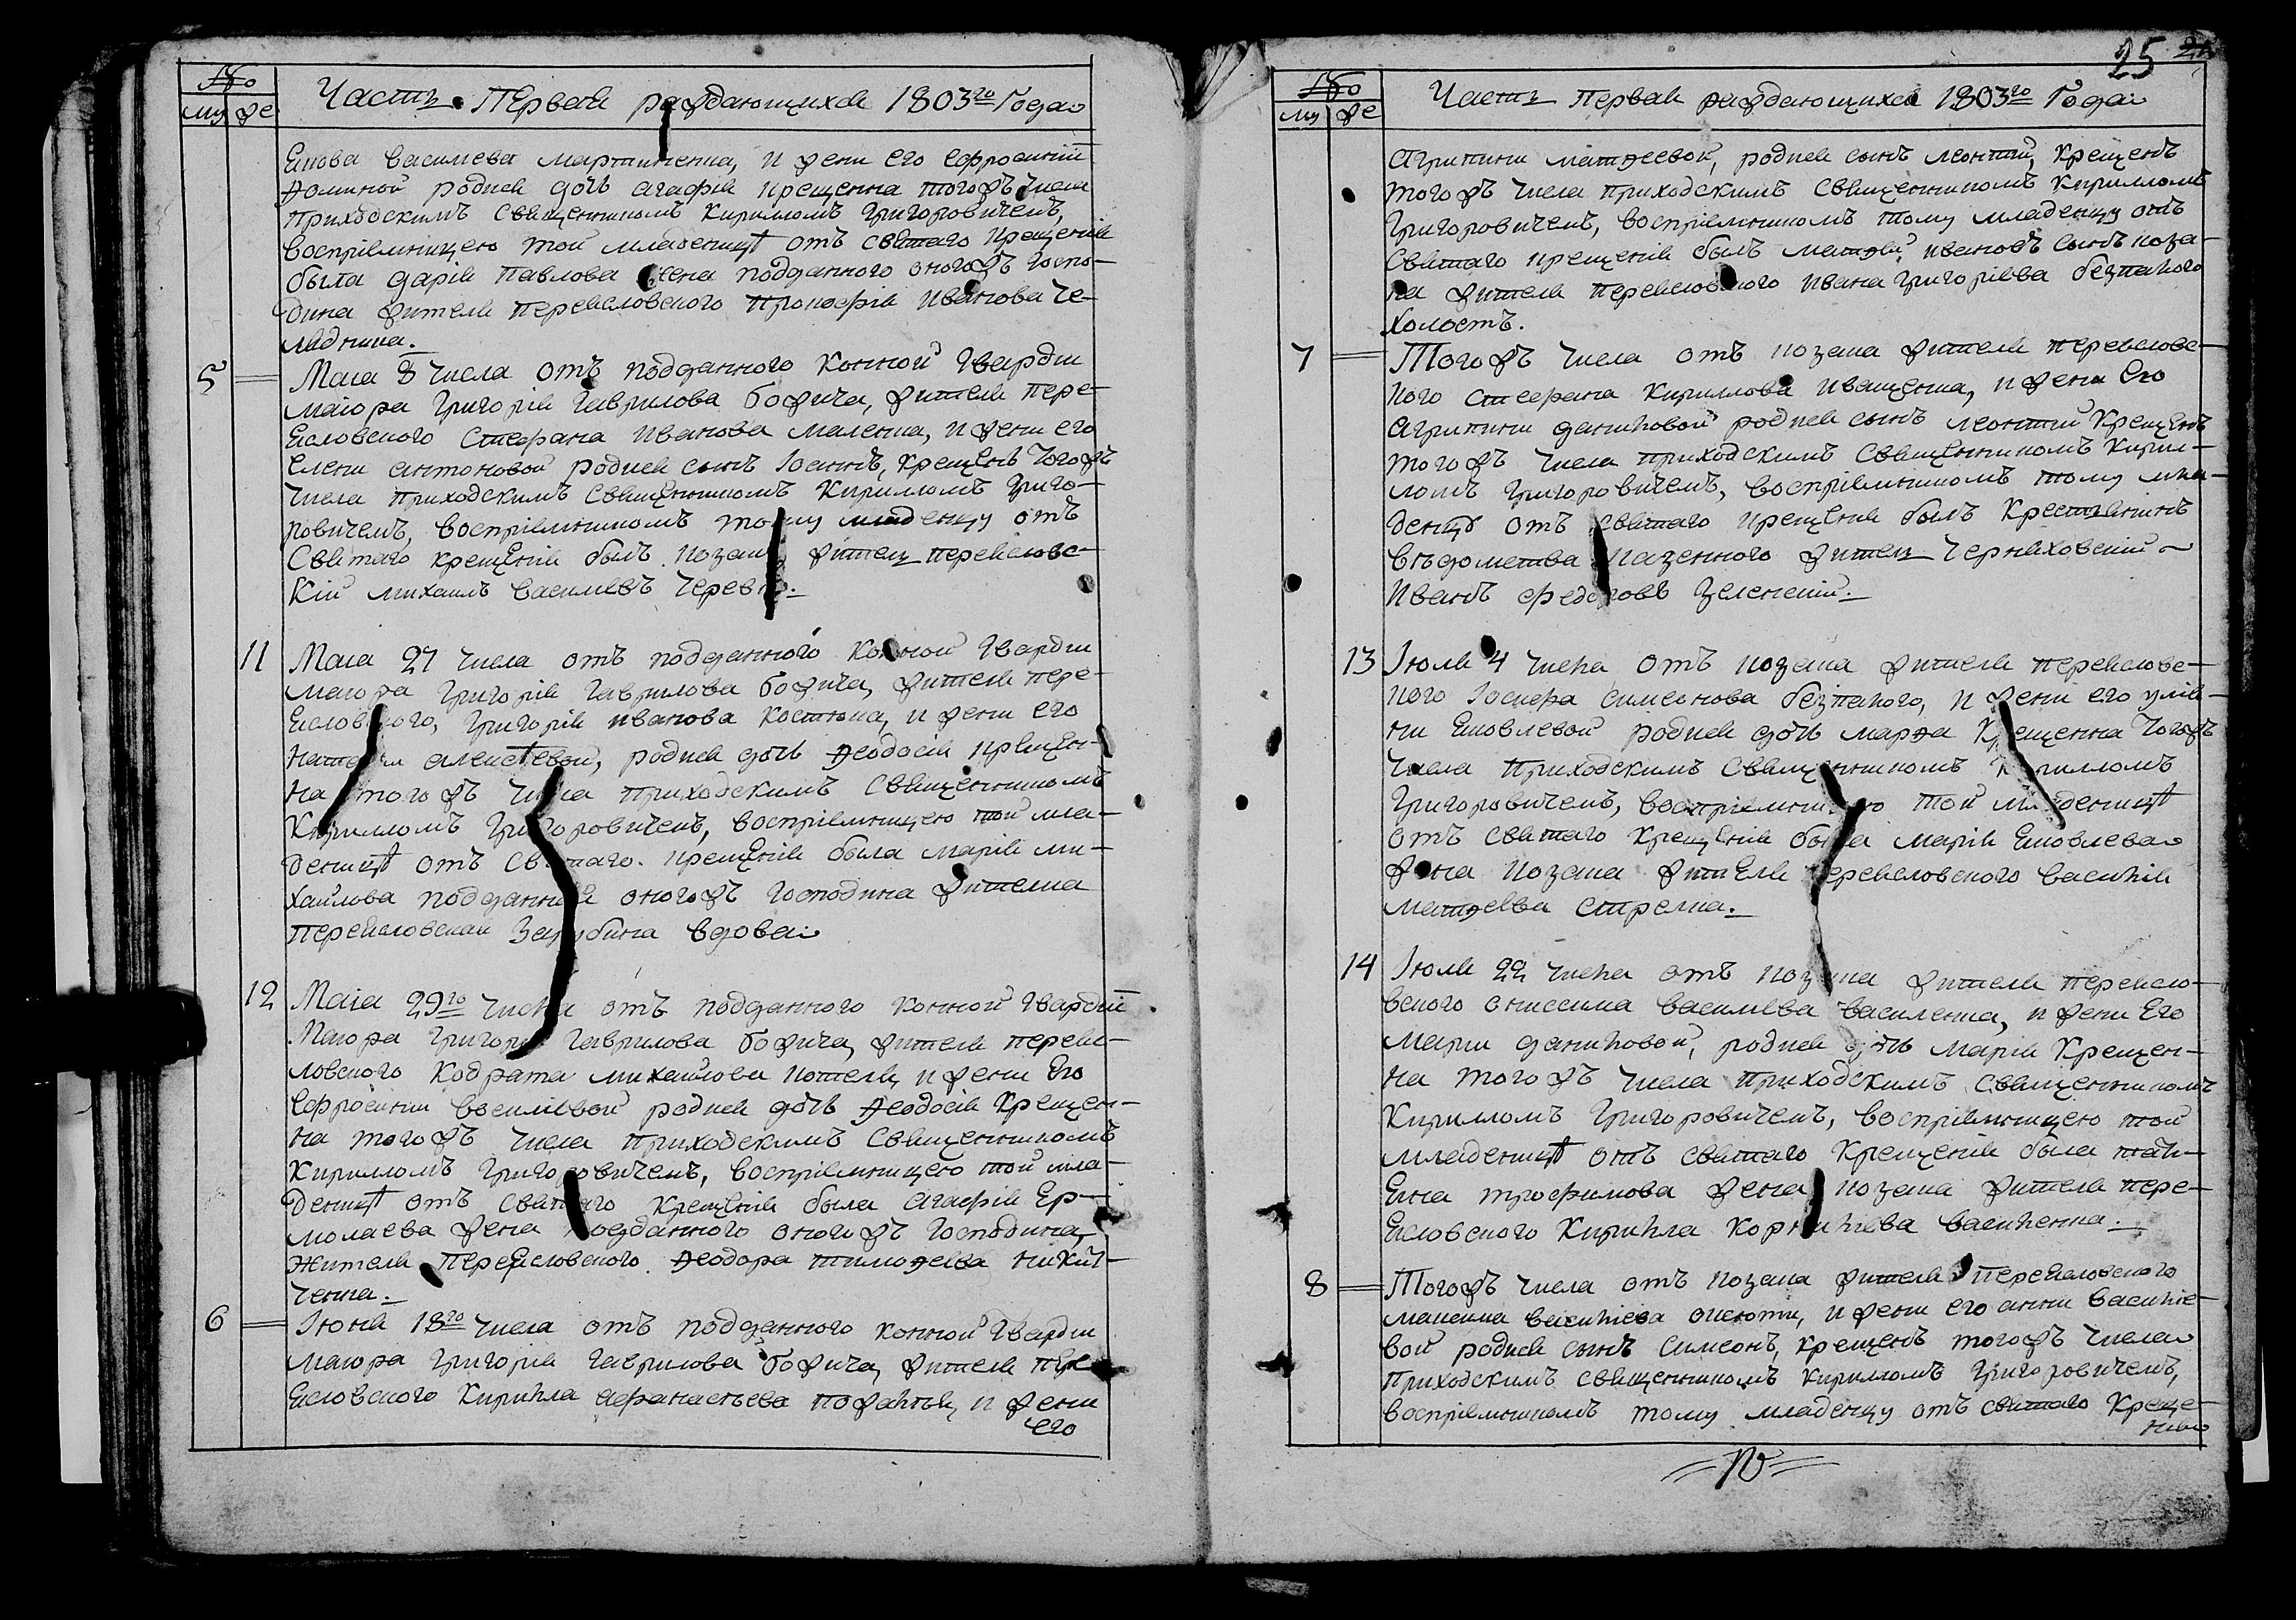 №
му же
Часть Первая раждающихся 1803го Года
Якова Василева мартиненка, и жени его Ефросинїи
Ѳоминой родися дочь агафїя крещенна тогожъ числа
приходскимъ Священникомъ Кирилломъ Григоровичемъ,
воспрїемницею той младеницѣ отъ святаго крещенїя
была дарїя Павлова жена подданного оногожъ госпо-
дина жителя переяловского Прокофїя Иванова Че-
лядника.
5 Маїа 8 числа отъ подданного Конной Гвардїи
маїора Григорїя Гаврилова божича, жителя пере-
яславского Стефана Иванова маленка, и жени его
Елени антоновой родися сынъ Іоаннъ, крещенъ тогожъ
числа приходскимъ Священникомъ Кирилломъ Григо-
ровичемъ, воспрїемникомъ тому младенцу отъ
Святаго крещенїя былъ козакъ житель переяловс-
кїй михаилъ василїевъ
11 Маїа 27 числа отъ подданного Конной Гвардїи
маїора Григорїя Гаврилова божича, жителя пере-
яловского, Григорїя иванова костюка, и жени его
наталїи алексѣевой, родися дочь Ѳеодосїя крещен-
на тогожъ числа приходскимъ Священникомъ
Кирилломъ Григоровичемъ, воспрїемницею той мла-
деницѣ отъ святаго крещенїя была марїя ми-
хайлова подданная оногожъ господина жителка
переяловская Зарубина вдова
12 Маїа 29го числа отъ подданного конной Гвардїи
Маїора Григорїя Гаврилова божича, жителя переяс-
ловского Кодрата михайлова котеля, и жени Его
Ефросинїи василїевой родися дочь Ѳеодосїя Крещен-
на тогожъ числа приходскимъ Священникомъ
Кирилломъ Григоровичемъ, воспрїемницею той мла-
деницѣ отъ святаго крещенїя была агафїя Ер-
молаева жена подданного оногожъ Господина,
жителя переясловского Ѳеодора тимоѳеева
ченка.
6 Іюня 18го числа отъ подданного конной Гвардїи
маїора Григорїя Гаврилова божича, жителя пере-
яcловского Кирила афанасїева и жени
его
25
№
му же
Часть Первая раждающихся 1803го Года
агрипини матѳеевой, родися сынъ леонтїй, крещенъ
тогожъ числа приходскимъ Священникомъ Кирилломъ
Григоровичемъ, воспрїемникомъ тому младенцу отъ
Святаго крещенїя былъ матѳей ивановъ сынъ коза-
ка жителя переясловского ивана григорїева безпалого
холостъ.
7 Тогожъ числа отъ козака жителя переяловс-
кого Стефана Кирилова иващенка, и жени его
агрипини данїиловой родися сынъ леонтїй Крещенъ
тогожъ числа приходскимъ Священникомъ Кирил-
ломъ Григоровичемъ, воспрїемникомъ тому мла-
денцу отъ святаго крещенїя былъ Крестянинъ
вѣдомства казенного житель Черняховскїй
Иванъ федоровъ Зеленскїй.
13 Іюля 4 числа отъ козака жителя переяловс-
кого Іосифа симеонова безпалого, и жени его улїя-
ни яковлевой родися дочь марѳа Крещенна тогожъ
числа приходскимъ Священникомъ Кирилломъ
Григоровичемъ, воспрїемницею той младеницѣ
отъ святаго крещенїя была марїя яковлева
жена козака жителя переясловского василїя
матѳеева стрелка.
14 Іюля 22 числа отъ козака жителя переясло-
вского онисима василїева василенка, и жени Его
марїи данїиловой, родися дочь марїя Крещен-
на тогожъ числа приходскимъ священникомъ
Кирилломъ Григоровичемъ, воспрїемницею той
младеницѣ отъ святаго крещенїя была татї-
яна трофимова жена козака жителя пере-
ясловского Кирила Корнилїева василенка.
8 Тогожъ числа отъ козака жителя переясловского
максима василїева и жени его анни василїе-
вой родися сынъ симеонъ, крещенъ тогожъ числа
приходскимъ священникомъ Кирилломъ Григоровичемъ,
воспрїемникомъ тому младенцу отъ святаго Креще-
нїя